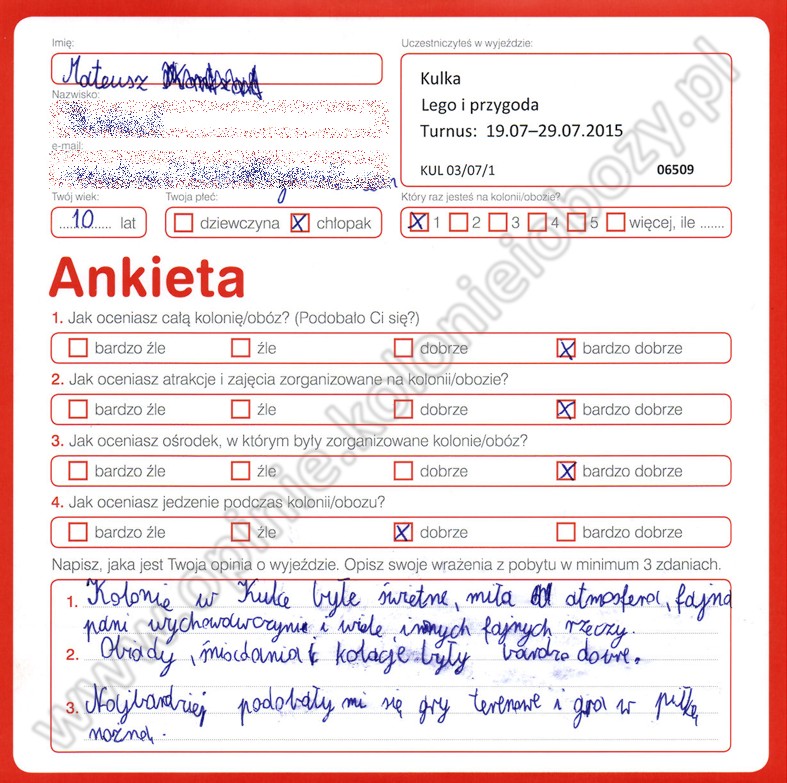 Imię:
Uczestniczyłeś w wyjeździe:
Mateusz
Kulka
Lego i przygoda
Turnus: 19.07–29.07.2015
KUL 03/07/1 06509
Nazwisko:
e-mail:
Twój wiek:
Twoja płeć:
Który raz jesteś na kolonii/obozie?
10 lat
dziewczyna X chłopak
X 1 2 3 4 5 więcej, ile .......
Ankieta
1. Jak oceniasz całą kolonię/obóz? (Podobało Ci się?)
bardzo źle źle dobrze X bardzo dobrze
2. Jak oceniasz atrakcje i zajęcia zorganizowane na kolonii/obozie?
bardzo źle źle dobrze X bardzo dobrze
3. Jak oceniasz ośrodek, w którym były zorganizowane kolonie/obóz?
bardzo źle źle dobrze X bardzo dobrze
4. Jak oceniasz jedzenie podczas kolonii/obozu?
bardzo źle źle X dobrze bardzo dobrze
Napisz, jaka jest Twoja opinia o wyjeździe. Opisz swoje wrażenia z pobytu w minimum 3 zdaniach.
1. Kolonie w Kulce były świetne, miła atmosfera, fajna
pani wychowawczynie i wiele innych fajnych rzeczy.
2. Obiady, śniadania i kolacje były bardzo dobre.
3. Najbardziej podobały mi się gry terenowe i gra w piłkę
nożną.
www.opinie.kolonieiobozy.pl